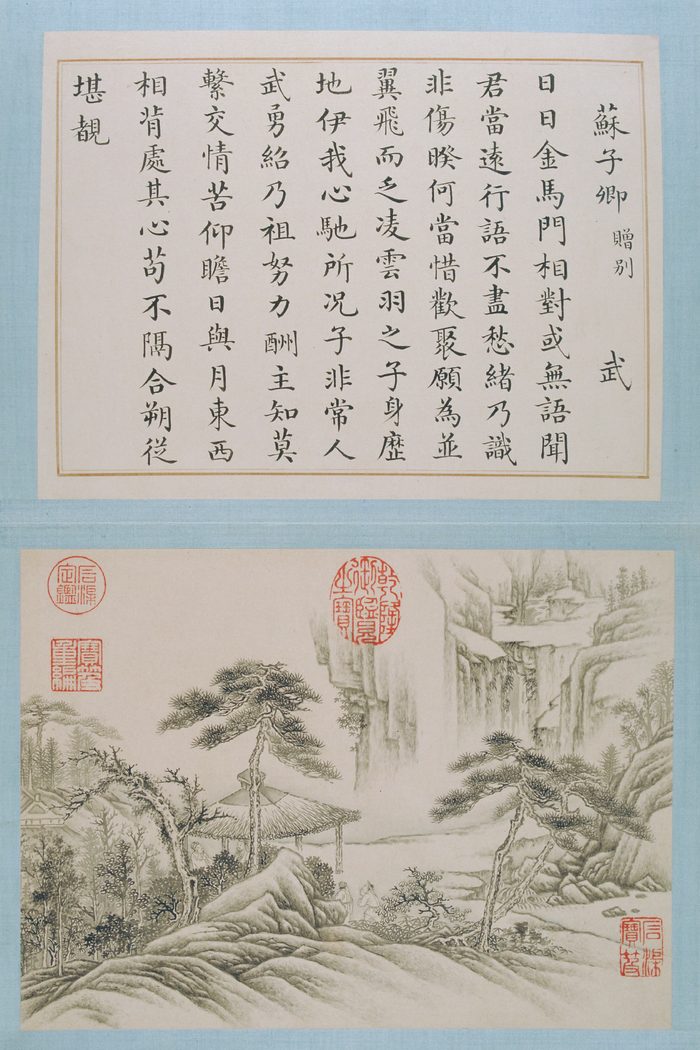 蘇子卿 贈别 武
日日金馬門相對或無語聞
君當遠行語不盡愁緒乃識
非傷暌何當惜歡聚願為並
翼飛而乏凌雲羽之子身歷
地伊我心馳所况子非常人
武勇紹乃祖努力酬主知莫
繫交情苦仰瞻日與月東西
相背處其心苟不隔合朔從
堪覩
乾隆御覽之寶
石渠定鑑
寶笈重編
石渠寶笈